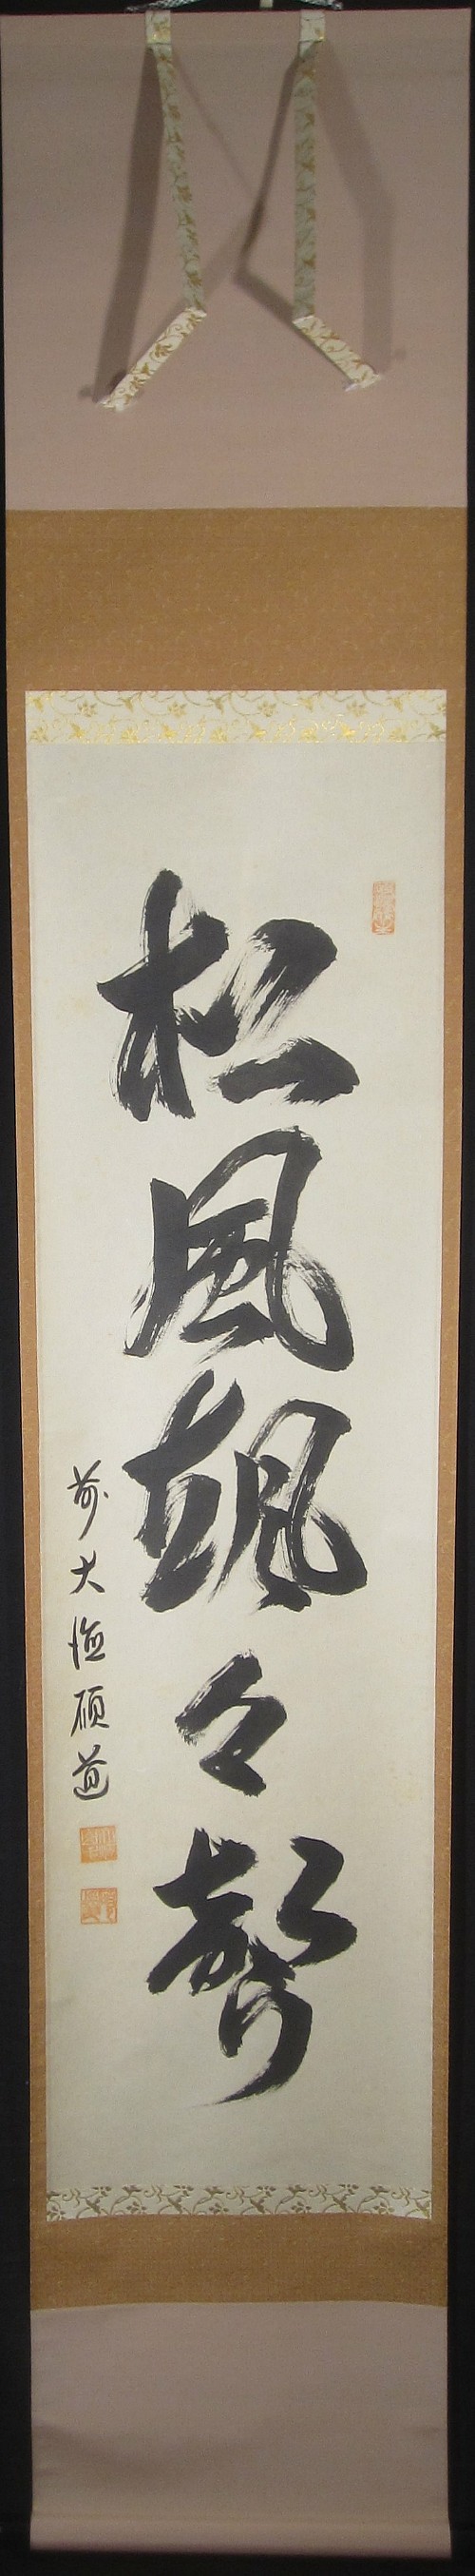 松風颯々聲
前大德碩道